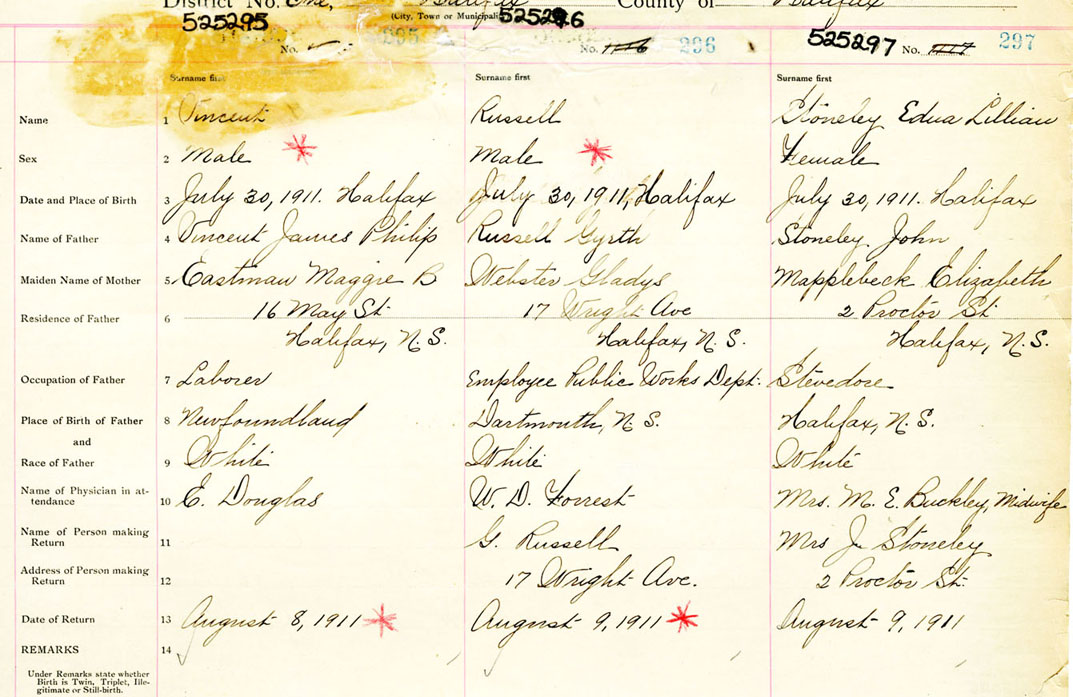 District No. One, Halifax County of Halifax
(City, Town or Municipality
525295 525296 525297
No. 295 No. 296 No. 297
Surname first Surname first Surname first
Name 1 Vincent Russell Stoneley Edna Lillian
Sex 2 Male Male Female
Date and Place of Birth 3 July 30, 1911. Halifax July 30, 1911, Halifax July 30, 1911. Halifax
Name of Father 4 Vincent James Philip Russell Gyrth Stoneley John
Maiden Name of Mother 5 Eastman Maggie B Webster Gladys Mapplebeck Elizabeth
Residence of Father 6 16 May St. 17 Wright Ave 2 Proctor St.
Halifax, N.S. Halifax, N.S. Halifax, N.S.
Occupation of Father 7 Laborer Employee Public Works Dept. Stevedore
Place of Birth of Father 8 Newfoundland Dartmouth, N.S. Halifax, N.S.
and
Race of Father 9 White White White
Name of Physician in at-
tendance 10 E. Douglas W. D. Forrest Mrs. M. E. Buckley, Midwife
Name of Person making
Return 11 G. Russell Mrs J. Stoneley
Address of Person making
Return 12 17 Wright Ave. 2 Proctor St.
Date of Return 13 August 8, 1911 August 9, 1911 August 9, 1911
REMARKS 14
Under Remarks state whether
Birth is Twin, Triplet, Ille-
gitimate or Still-birth.